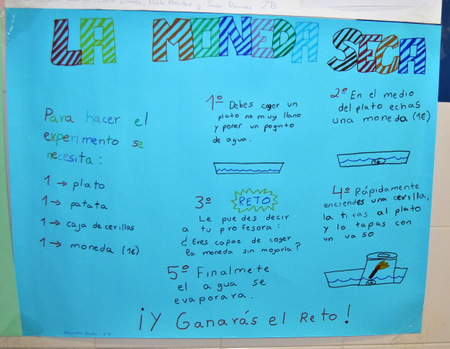 LA MONEDA SECA
Para hacer el
experimento se
necesita:
1 → plato
1 → patata
1 → caja de cerillas
1 → moneda (1€)
1º Debes coger un
plato no muy llano
y poner un poquito
de agua.
2º En el medio
del plato echas
una moneda (1€)
3º RETO
Le puedes decir
a tu profesora:
¿Eres capaz de coger
la moneda sin mojarla?
4º Rápidamente
enciendes una cerilla,
la tiras al plato
y lo tapas con
un vaso
5º Finalmete
el agua se
evaporara.
¡Y Ganarás el Reto!